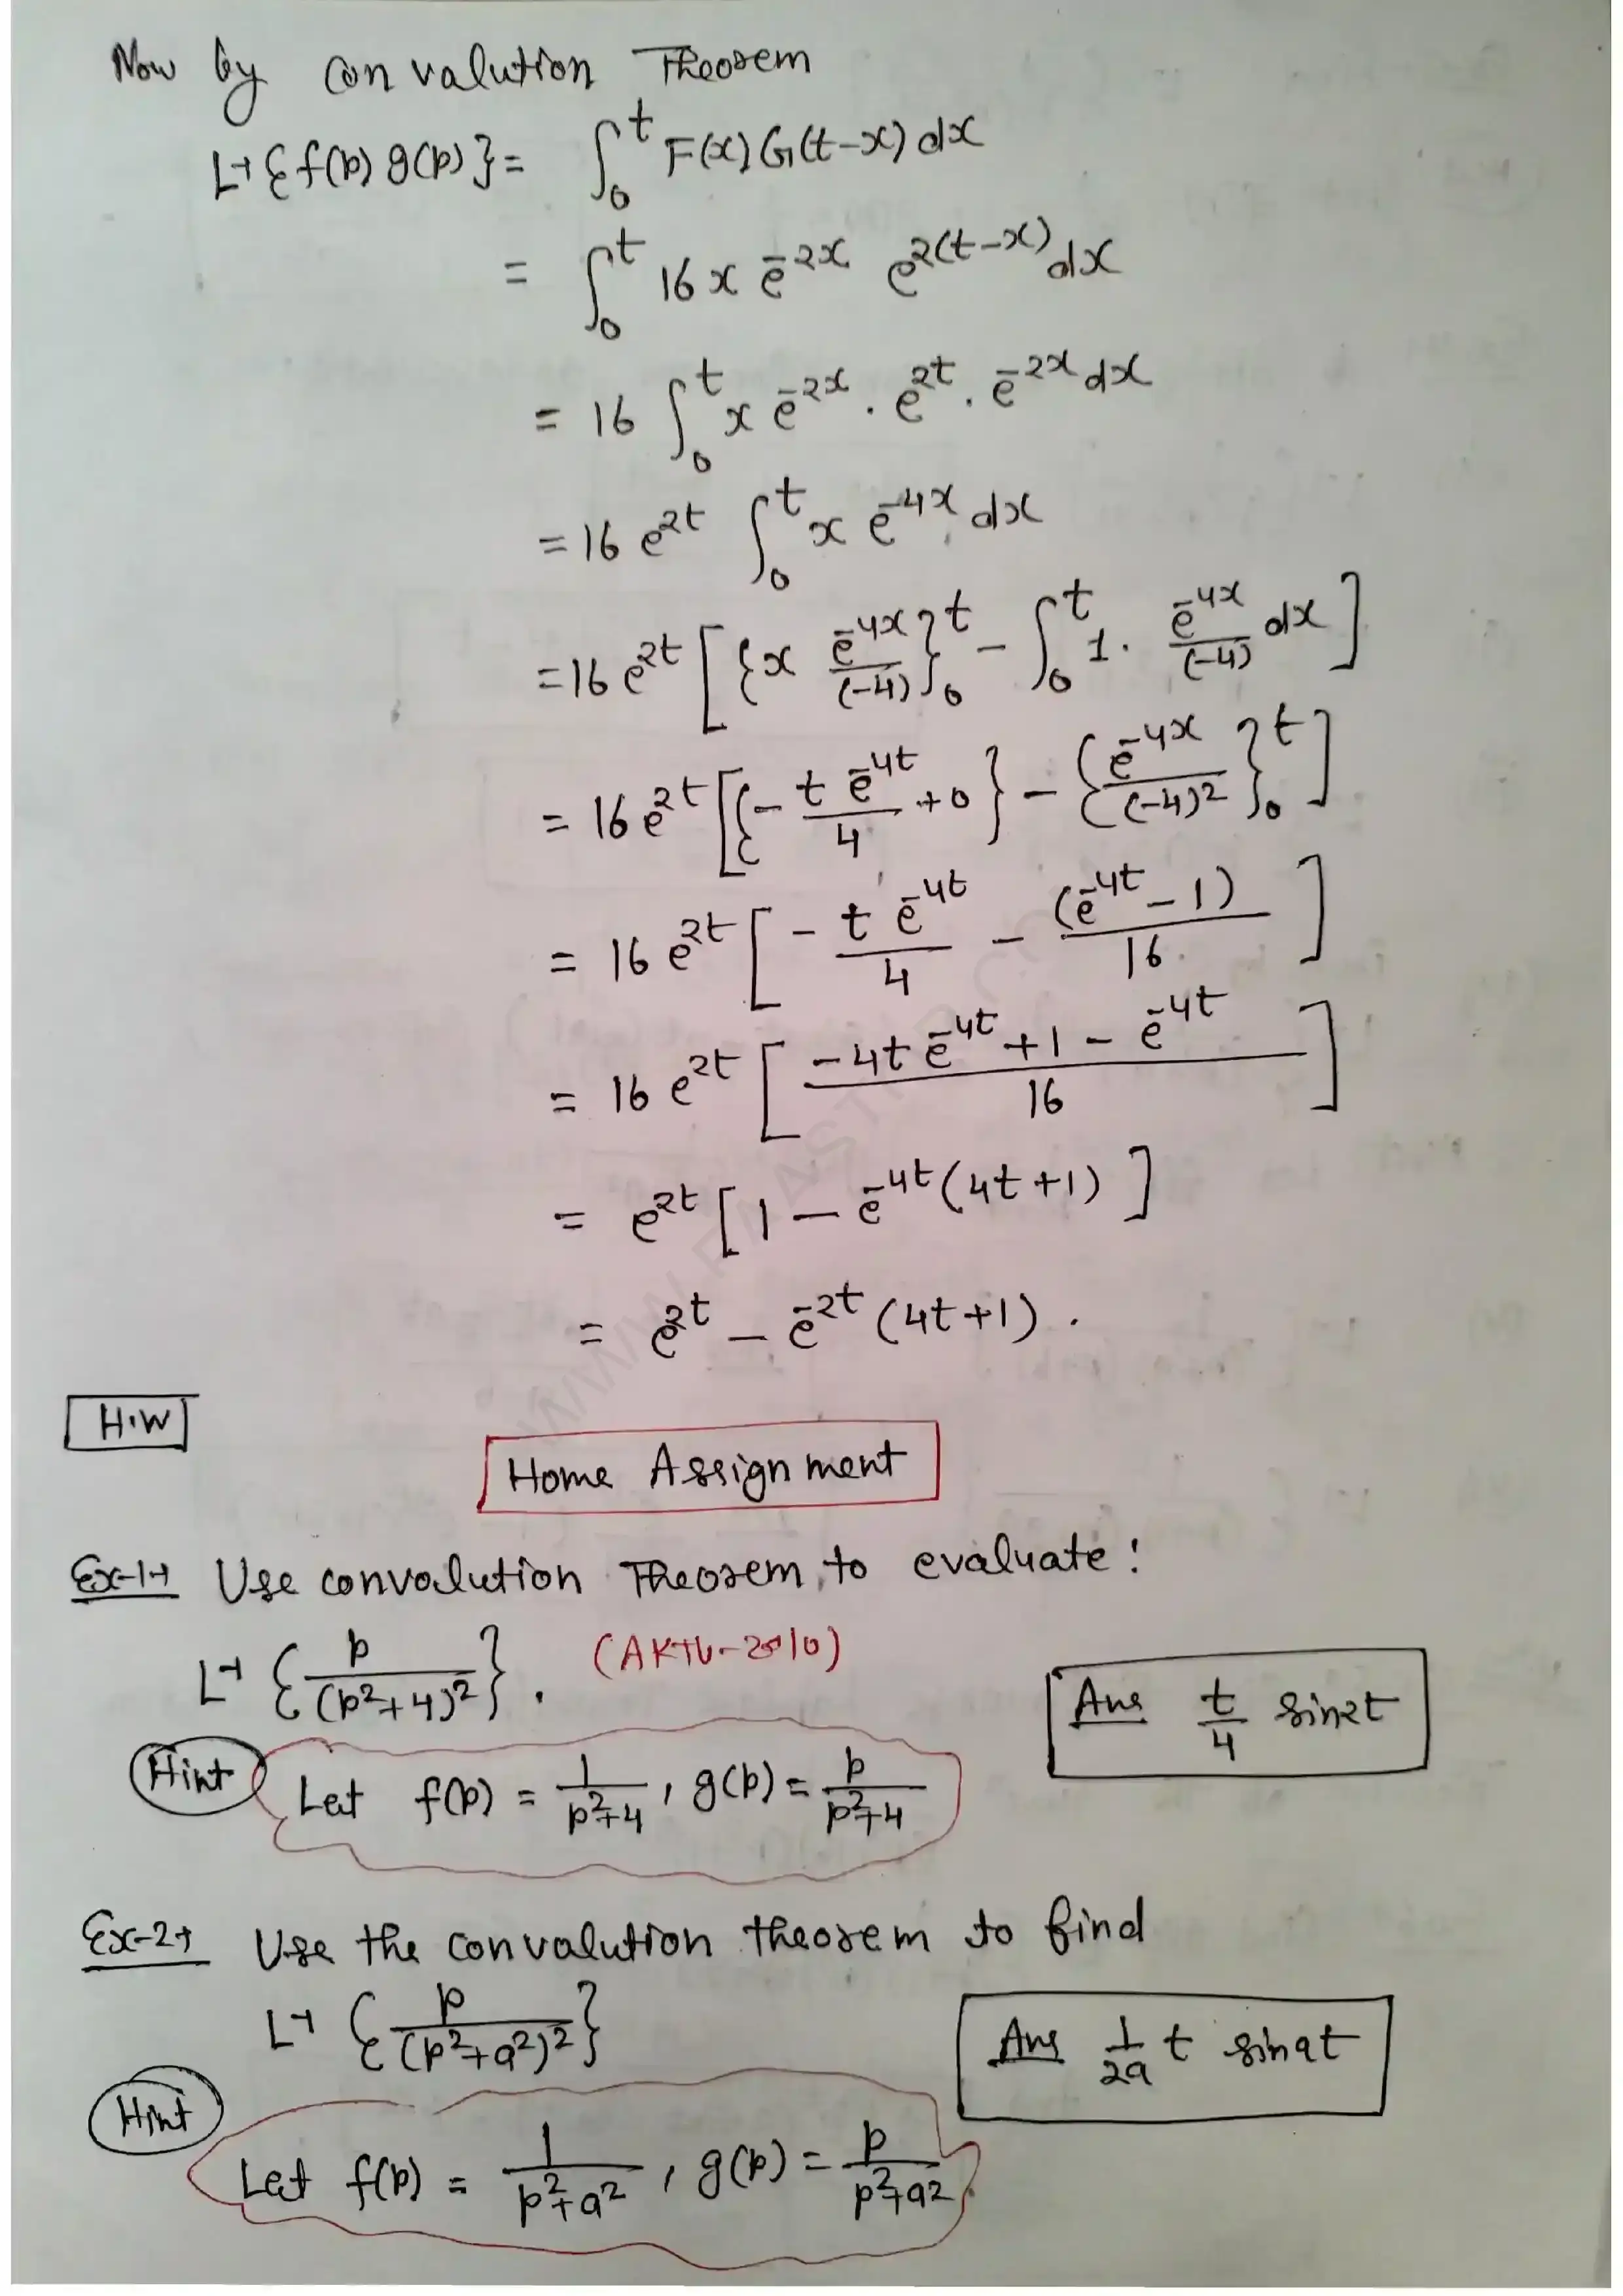 Now by convalution Theorem
L⁻¹{f(p) g(p)} = ∫₀ᵗ F(x) G(t-x) dx
= ∫₀ᵗ 16x e⁻²ˣ e²⁽ᵗ⁻ˣ⁾ dx
= 16 ∫₀ᵗ x e⁻²ˣ . e²ᵗ . e⁻²ˣ dx
= 16 e²ᵗ ∫₀ᵗ x e⁻⁴ˣ dx
= 16 e²ᵗ [ {x e⁻⁴ˣ/(-4)}₀ᵗ - ∫₀ᵗ 1. e⁻⁴ˣ/(-4) dx ]
= 16 e²ᵗ [ {- t e⁻⁴ᵗ/4 + 0} - {e⁻⁴ˣ/(-4)²}₀ᵗ ]
= 16 e²ᵗ [ - t e⁻⁴ᵗ/4 - (e⁻⁴ᵗ - 1)/16 ]
= 16 e²ᵗ [ (-4t e⁻⁴ᵗ + 1 - e⁻⁴ᵗ)/16 ]
= e²ᵗ [1 - e⁻⁴ᵗ (4t+1) ]
= e²ᵗ - e⁻²ᵗ (4t+1) .
H.W
Home Assignment
Ex-1→ Use convolution Theorem, to evaluate:
L⁻¹ {p/(p²+4)²} . (AKTU-2010)
Ans t/4 sin2t
Hint Let f(p) = 1/(p²+4) , g(p) = p/(p²+4)
Ex-2→ Use the convalution theorem to find
L⁻¹ {p/(p²+a²)²}
Ans 1/2a t sinat
Hint
Let f(p) = 1/(p²+a²) , g(p) = p/(p²+a²).